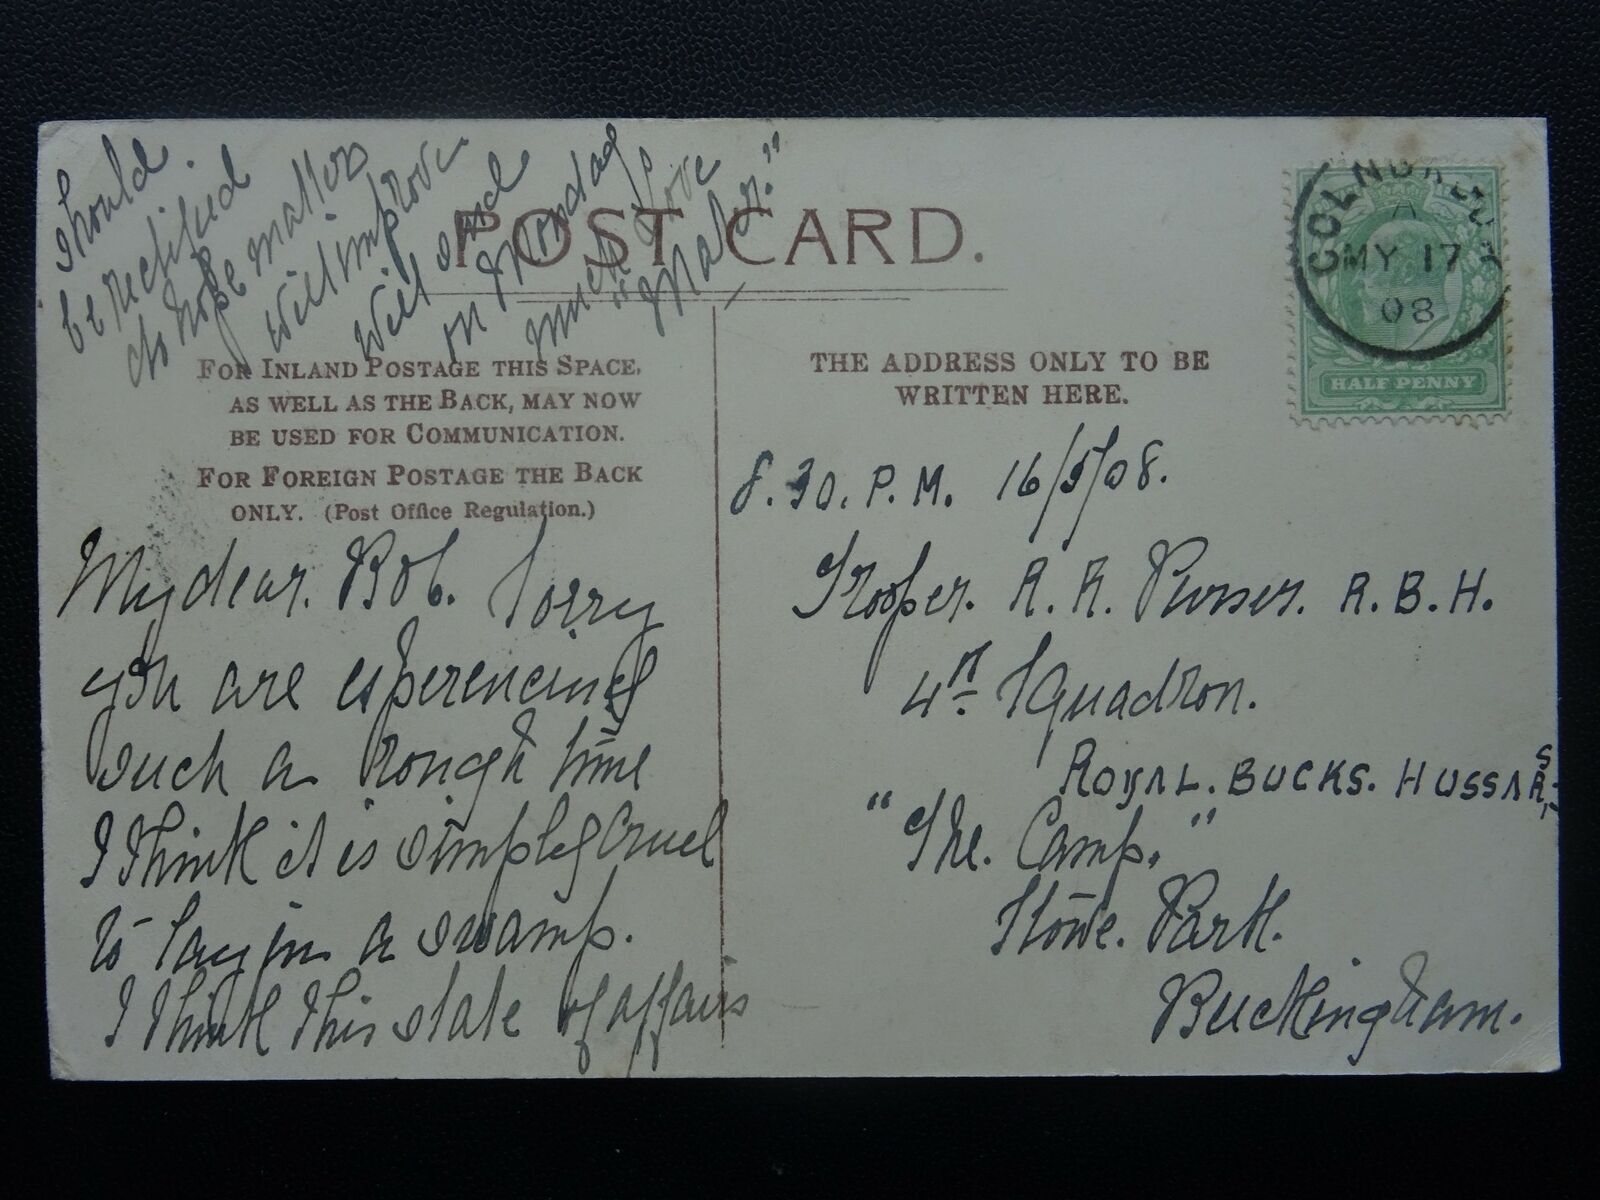 POST CARD.
FOR INLAND POSTAGE THIS SPACE,
AS WELL AS THE BACK, MAY NOW
BE USED FOR COMMUNICATION.
FOR FOREIGN POSTAGE THE BACK
ONLY. (Post Office Regulation.)
My dear. Bob. Sorry
you are experencing
such a rough time
I think it is simply cruel
to lay in a swamp.
I think this state of affairs
should
be rectified
do hope matters
will improve
will send
on Monday
much love
"Mater."
THE ADDRESS ONLY TO BE
WRITTEN HERE.
A
MY 17
08
HALF PENNY
8.30. P.M. 16/5/08.
Trooper. R. R. Purser. R.B.H.
4th Squadron.
ROYAL. BUCKS. HUSSARS
"The. Camp."
Stowe. Park.
Buckingham.